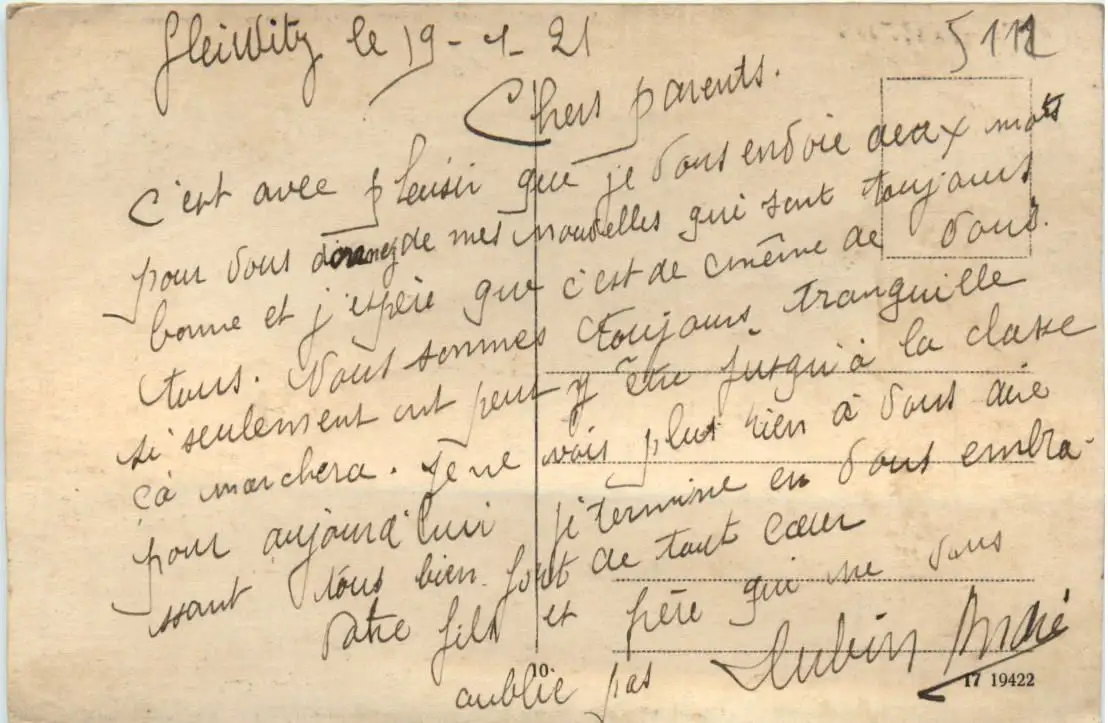 Gleiwitz le 19-1-21
5112
Chers parents.
C'est avec pleisir que je vous envoie deux mots
pour vous donnez de mes nouvelles qui sont toujours
bonne et j'espère que c'est de même de vous.
tous. Nous sommes toujours tranquille
si seulement ont peut y être jusqu'à la classe
çà marchera. Je ne vois plus rien à vous dire
pour aujourd'hui je termine en vous embra-
ssant tous bien fort de tout cœur
Votre fils et frère qui ne vous
oublie pas
Aubin André
10
17 19422